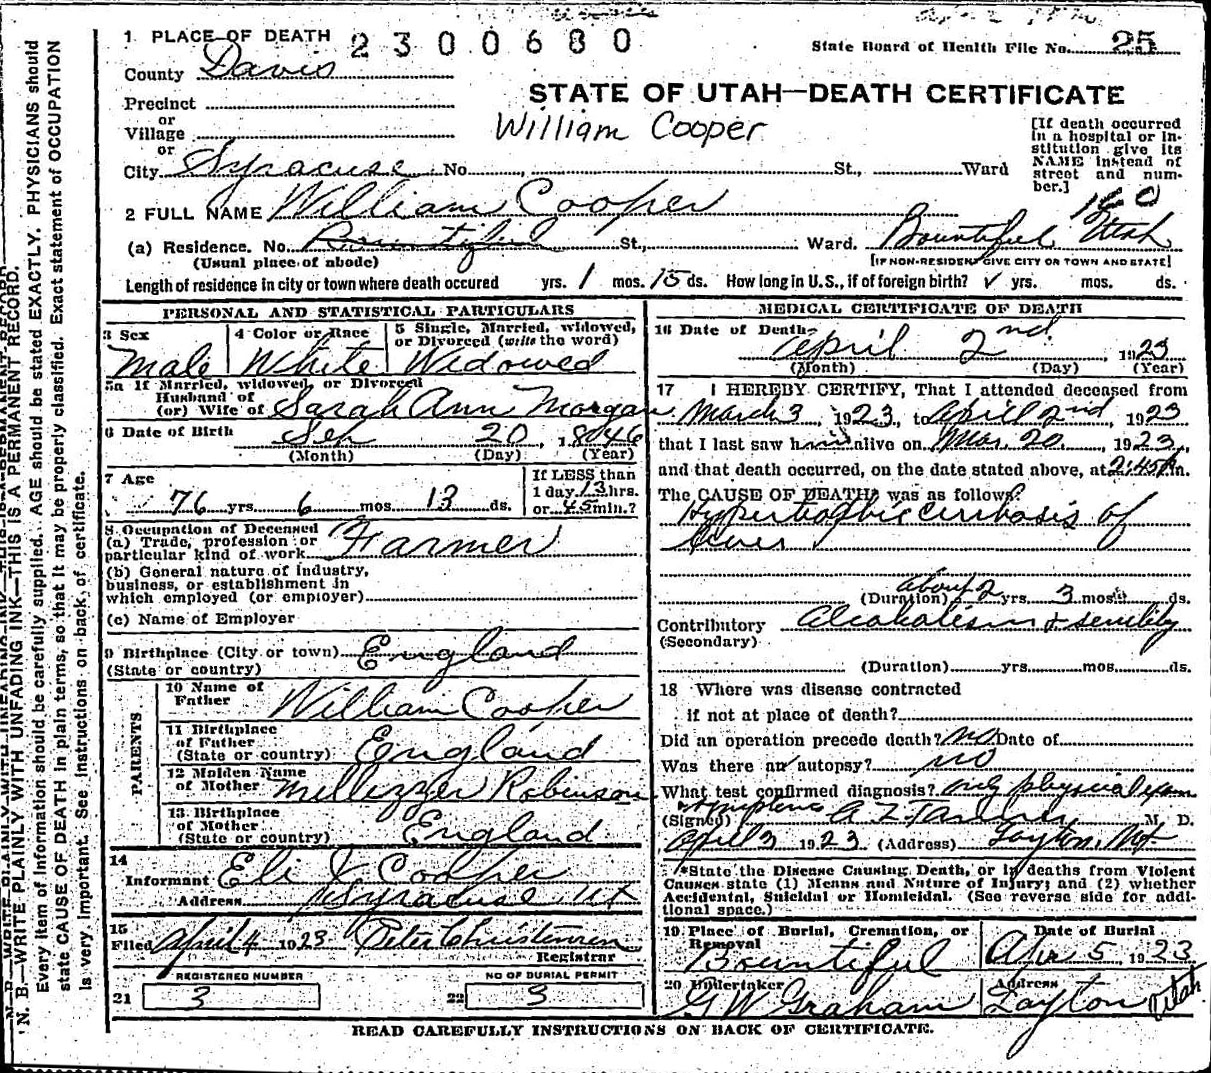 1 PLACE OF DEATH 2300680
State Board of Health File No. 25
County Davis
STATE OF UTAH—DEATH CERTIFICATE
Precinct
or
Village
William Cooper
or
City Syracuse No. , St., Ward
[If death occurred in a hospital or institution give its NAME instead of street and number.]
160
2 FULL NAME William Cooper
(a) Residence. No. Bountiful St., Ward. Bountiful Utah
(Usual place of abode) [IF NON-RESIDENT GIVE CITY OR TOWN AND STATE]
Length of residence in city or town where death occured yrs. 1 mos. 15 ds. How long in U.S., if of foreign birth? ✓ yrs. mos. ds.
PERSONAL AND STATISTICAL PARTICULARS
3 Sex
Male
4 Color or Race
White
5 Single, Married, widowed,
or Divorced (write the word)
Widowed
5a If Married, widowed, or Divorced
Husband of
(or) Wife of Sarah Ann Morgan
6 Date of Birth Sep 20, 1846
(Month) (Day) (Year)
7 Age
76 yrs. 6 mos. 13 ds.
If LESS than
1 day 13 hrs.
or 45 min.?
8 Occupation of Deceased
(a) Trade, profession or
particular kind of work Farmer
(b) General nature of industry,
business, or establishment in
which employed (or employer)
(c) Name of Employer
9 Birthplace (City or town) England
(State or country)
PARENTS
10 Name of
Father William Cooper
11 Birthplace
of Father
(State or country) England
12 Maiden Name
of Mother Millizzer Robinson
13 Birthplace
of Mother
(State or country) England
14
Informant Eli J Cooper
Address Syracuse Ut
15
Filed April 4 1923 Peter Christensen
Registrar
REGISTERED NUMBER NO OF BURIAL PERMIT
21 3 22 3
MEDICAL CERTIFICATE OF DEATH
16 Date of Death
April 2nd, 1923
(Month) (Day) (Year)
17 I HEREBY CERTIFY, That I attended deceased from
March 3, 1923, to April 2nd, 1923
that I last saw him alive on Mar. 20, 1923,
and that death occurred, on the date stated above, at 2:45 p m.
The CAUSE OF DEATH* was as follows:
Hypertrophic cirrhosis of
liver
(Duration) about 2 yrs 3 mos ds.
Contributory Alcoholism & senility
(Secondary)
(Duration) yrs. mos. ds.
18 Where was disease contracted
if not at place of death?
Did an operation precede death? no Date of
Was there an autopsy? no
What test confirmed diagnosis? only physical exam
& symptoms
(Signed) M. D.
April 3 1923 (Address) Layton, Ut.
*State the Disease Causing Death, or in deaths from Violent
Causes state (1) Means and Nature of Injury; and (2) whether
Accidental, Suicidal or Homicidal. (See reverse side for addi-
tional space.)
19 Place of Burial, Cremation, or
Removal
Bountiful
Date of Burial
Apr 5, 1923
20 Undertaker
G W Graham
Address
Layton Utah
READ CAREFULLY INSTRUCTIONS ON BACK OF CERTIFICATE.
N. B.—WRITE PLAINLY WITH UNFADING INK—THIS IS A PERMANENT RECORD.
Every item of information should be carefully supplied. AGE should be stated EXACTLY. PHYSICIANS should
state CAUSE OF DEATH in plain terms, so that it may be properly classified. Exact statement of OCCUPATION
is very important. See instructions on back of certificate.